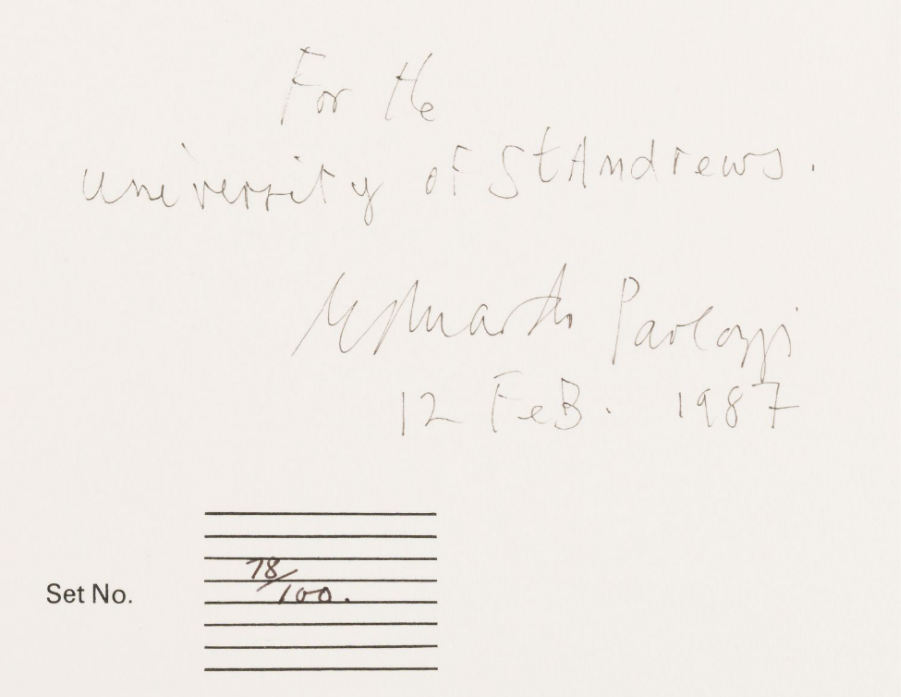 For the
University of St Andrews.
Eduardo Paolozzi
12 FeB. 1987
Set No. 78/100.